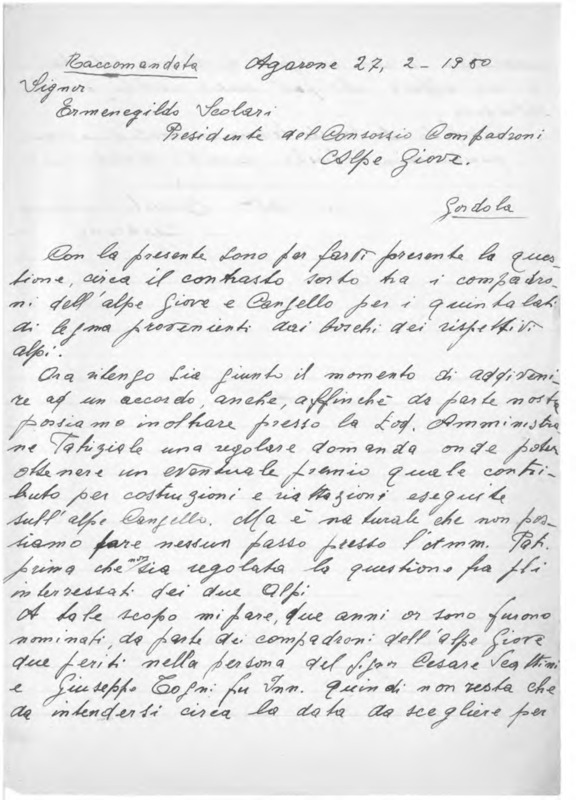 Raccomandata Agarone 27, 2 - 1950
Signor
Ermenegildo Scolari
Presidente del Consorsio Compadroni
Alpe Giova.
Gordola
Con la presente sono per farvi presente la ques-
tione, circa il contrasto sorto tra i compadro-
ni dell'alpe Giova e Cangello per i quintalati
di legna provenienti dai boschi dei rispettivi
alpi.
Ora ritengo sia giunto il momento di addiveni-
re ad un accordo, anche, affinchè da parte nostra
possiamo inoltrare presso la Lod. Amministra
ne Patriziale una regolare domanda onde poter
ottenere un eventuale premio quale contri-
buto per costruzioni e riattazioni eseguite
sull'alpe Cangello. Ma è naturale che non pos-
siamo fare nessun passo presso l'Amm. Pat.
prima che non sia regolata la questione fra gli
interressati dei due Alpi
A tale scopo mi pare, due anni or sono furono
nominati, da parte dei compadroni dell'alpe Giova
due periti nella persona del Sign Cesare Scattini
e Giuseppe Togni fu Inn. Quindi non resta che
da intendersi circa la data da scegliere per